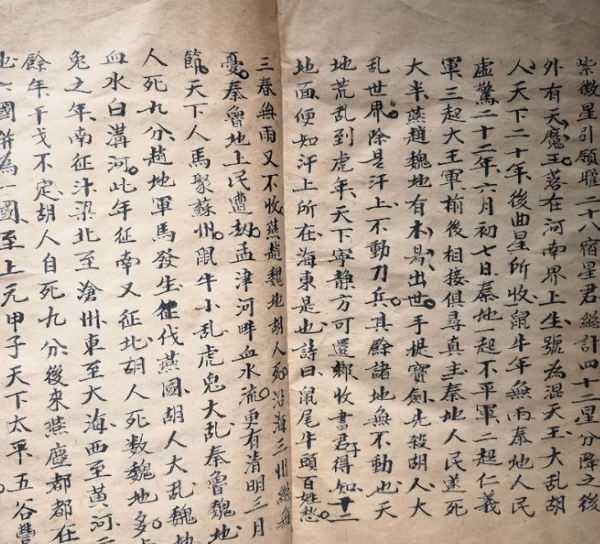 紫微星引領曜二十八宿星君總計四十二星分降之後
外有天魔王落在河南界上生號為混天王大乱胡
人天下二十年後曲星所收鼠牛年無雨秦地人民
虛驚二十二年六月初七日秦地一起不平軍二起仁義
軍三起大王軍前後相接俱尋真主秦地人民逃死
大半燕趙魏地有木易出世手提寶劍先殺胡人大
乱世界除是汗上不動刀兵其餘諸地無不動也天
地荒乱到虎年天下寧靜方可還鄉收書君子得知十二
地面便知汗上所在海東是也詩曰鼠尾牛頭百姓愁
三春無雨又不收燕趙魏地胡人死沿海三州總無
憂秦魯地上民遭劫孟津河畔血水流更有清明三月
節天下人馬聚蘇州鼠牛小乱虎兔大乱秦魯魏地
人死九分趙地軍馬發生征伐燕國胡人大乱魏地
血水白溝河此年征南又征北胡人死数魏地多
兔之年南征汴梁北至滄州東至大海西至黃河二
餘年干戈不定胡人自死九分後來燕塵都都在
也六國併為一國至上元甲子天下太平五谷豐